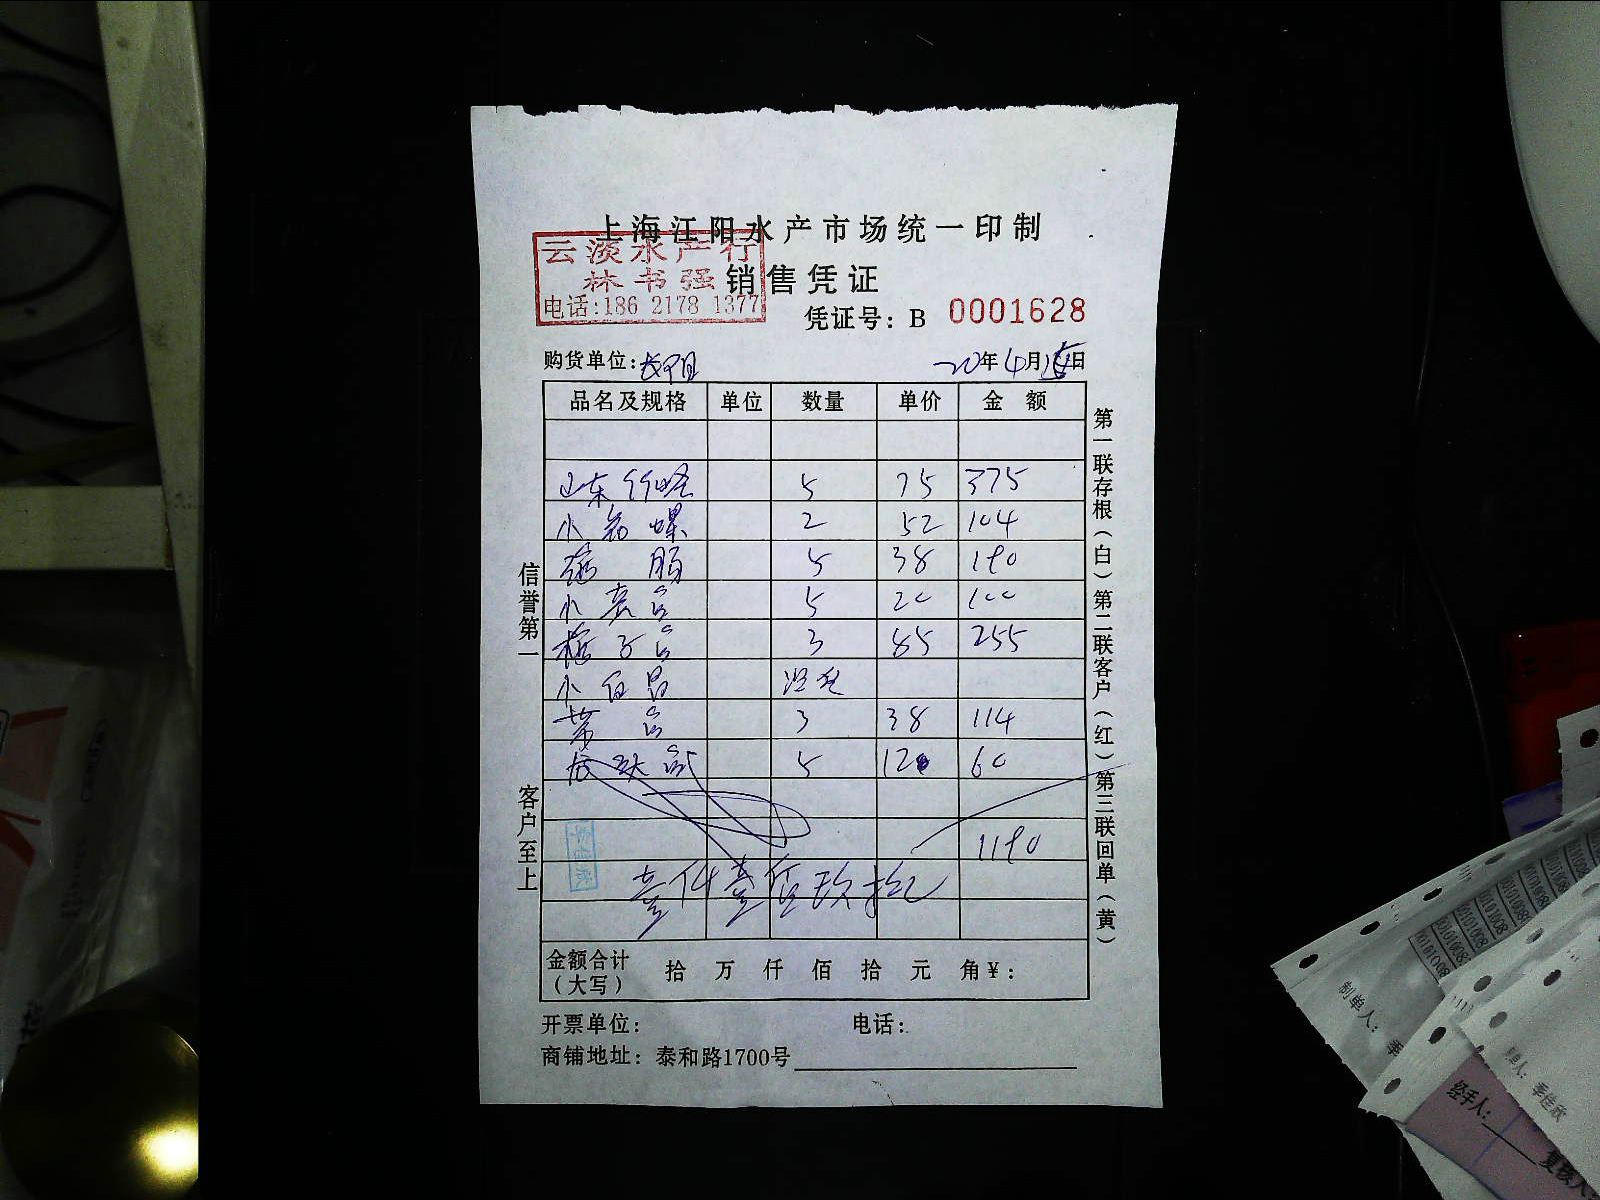 上海江阳水产市场统一印制
云淡水产行
林书强
电话:186 2178 1377
销售凭证
凭证号: B 0001628
购货单位:
20年4月 日
品名及规格 单位 数量 单价 金额
山东竹蛏 5 75 375
小 螺 2 52 104
5 38 190
小黄鱼 5 20 100
梅子鱼 3 85 255
小白
带鱼 3 38 114
5 12 60
1190
壹仟壹佰玖拾
金额合计
(大写)
拾 万 仟 佰 拾 元 角¥:
开票单位: 电话:
商铺地址: 泰和路1700号
信誉第一
客户至上
第一联存根(白)第二联客户(红)第三联回单(黄)
制单人: 季
单人: 季佳欣
经手人:
复核人